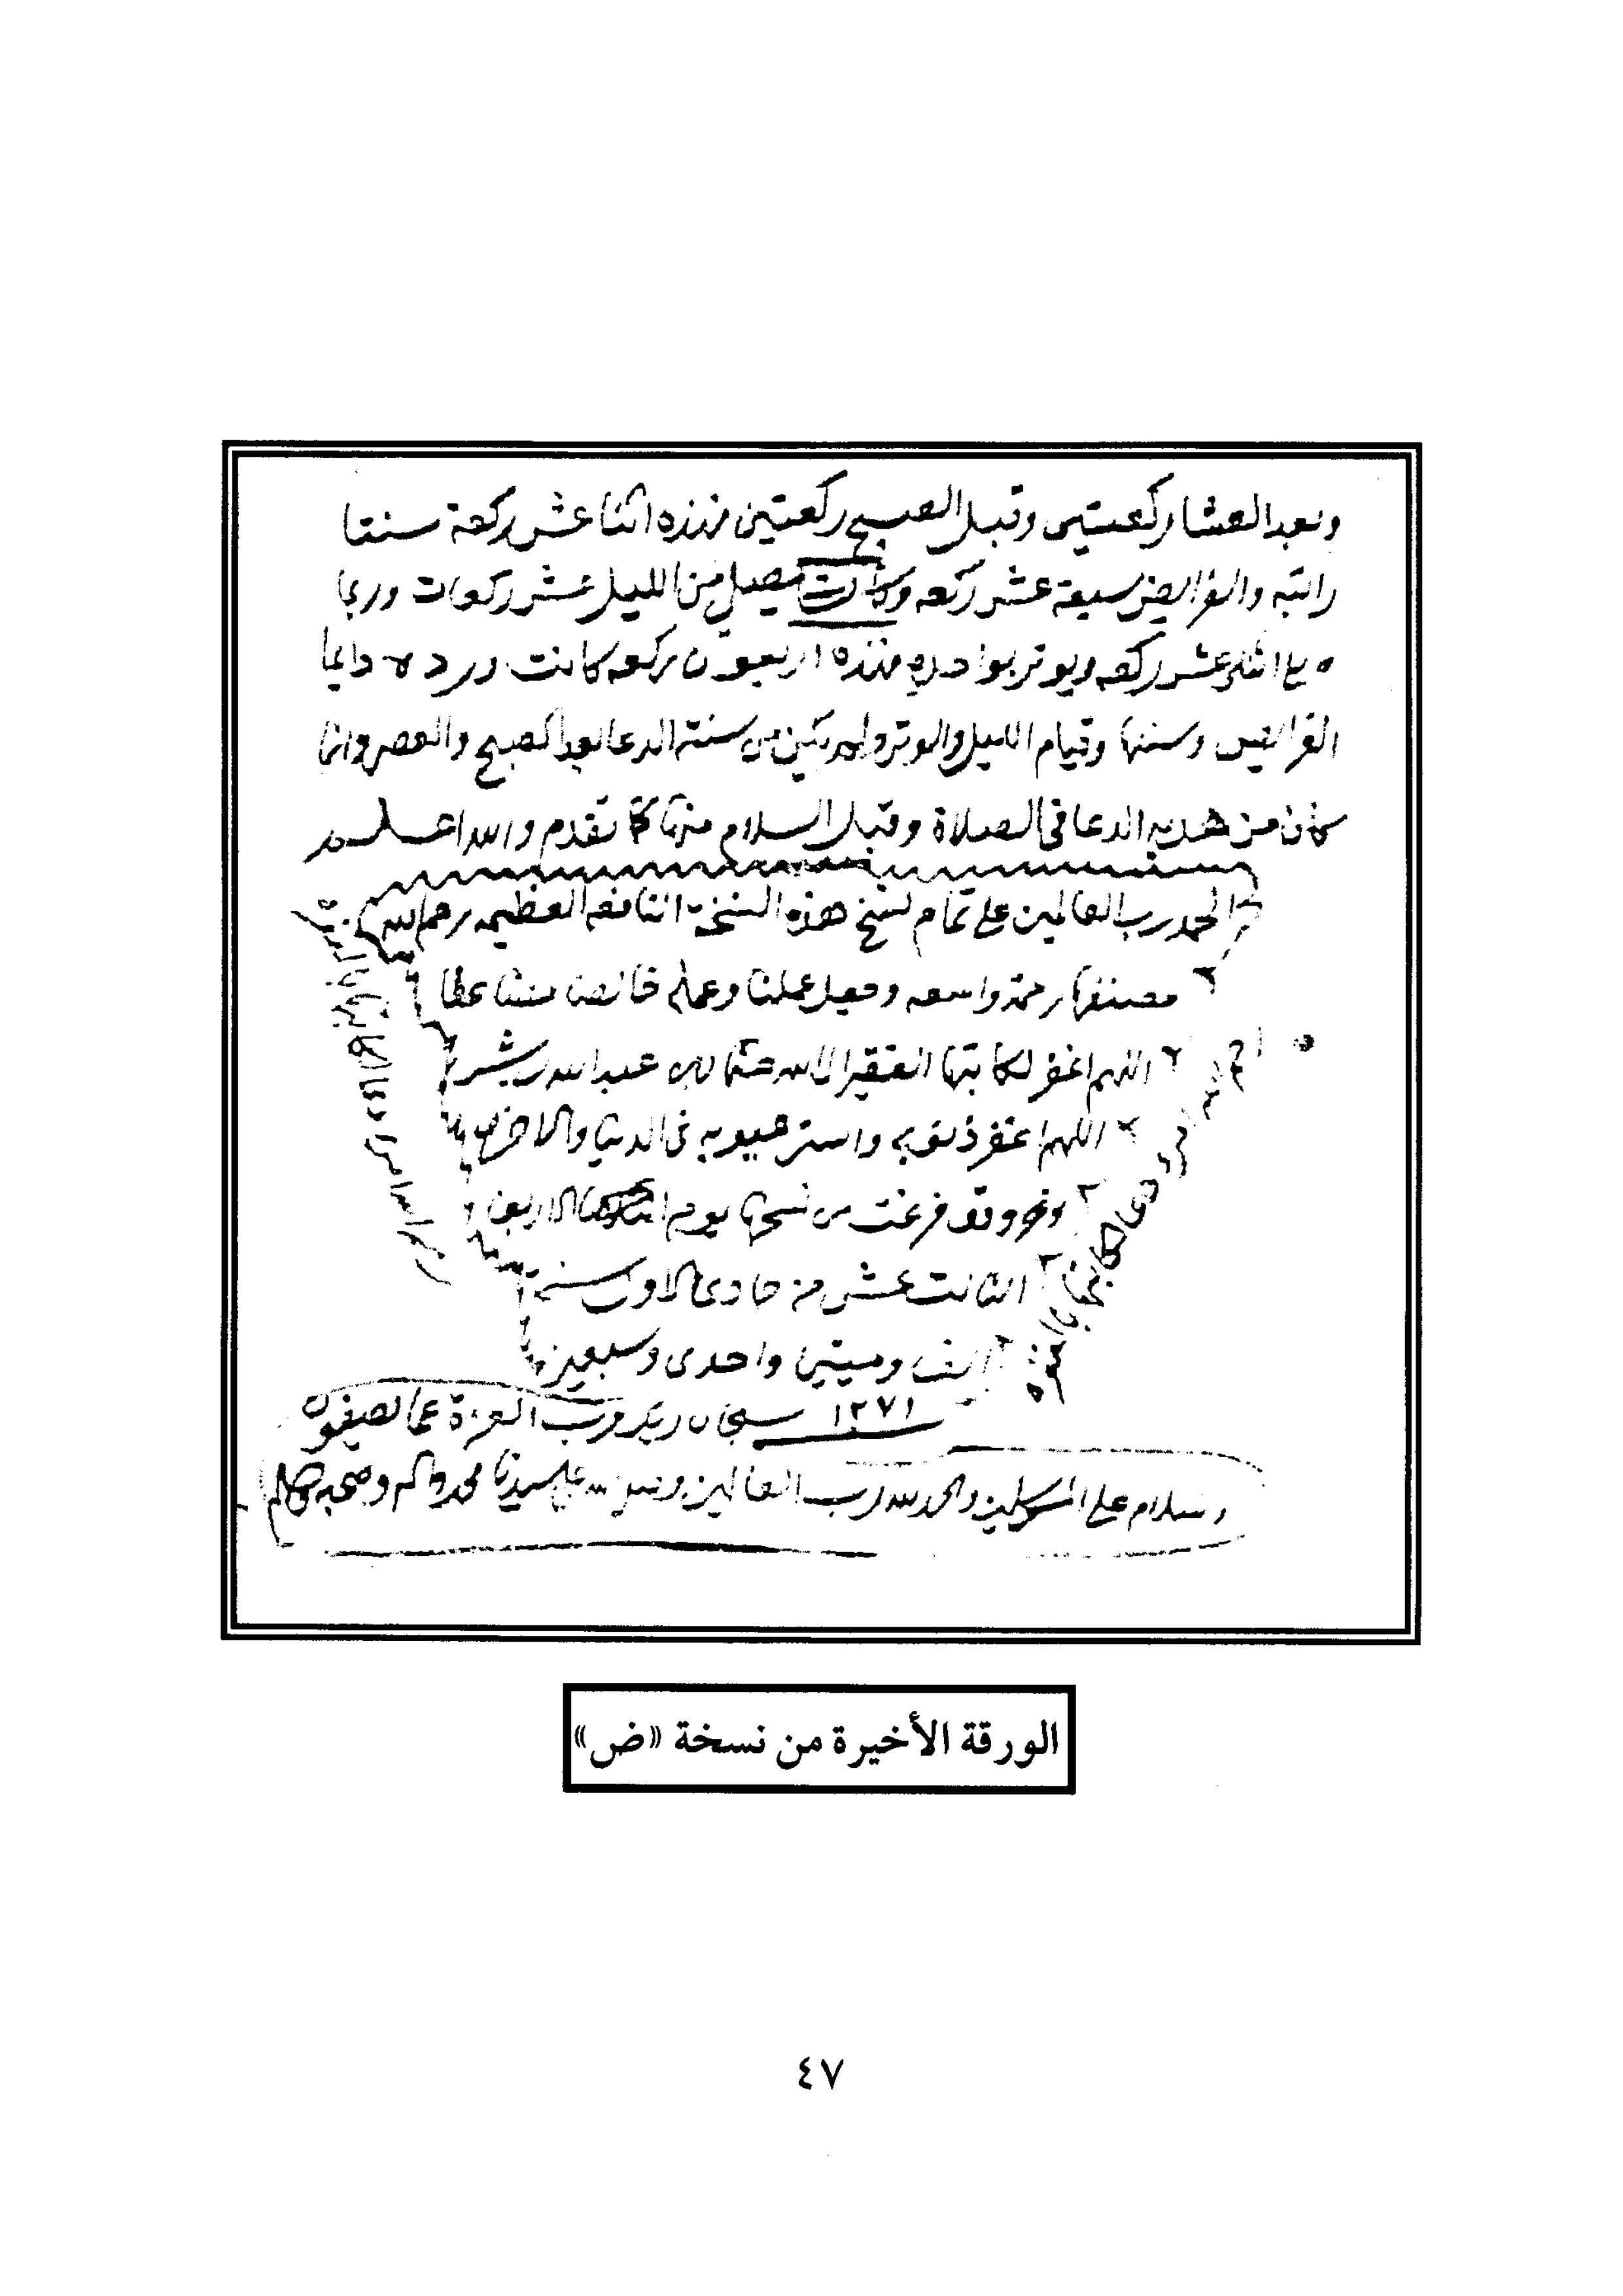 وبعد العشا ركعتين وقبل الصبح ركعتين فهذه اثنا عشر ركعة سننا
راتبه والفرايض سبعة عشر ركعه وكان يصلي من الليل عشر ركعات وربما
اثنا عشر ركعه ويوتر بواحده فهذه اربعون ركعه كانت ورده دايما
الفرايض وسننها وقيام الليل والوتر ولم يكن من سنته الدعا بعد الصبح والعصر وانما
كان من هديه الدعا في الصلاة وقبل السلام منها كما تقدم والله اعلم
الحمد رب العالمين على تمام نسخ هذه النسخة النافعه العظيمه رحم الله
مصنفها رحمة واسعه وجعل عملنا وعمله خالصا
اللهم اغفر لكاتبها الفقير الى الله عبد الله
اللهم اغفر ذنوبه واستر عيوبه في الدنيا والاخره
وقد فرغت من نسخها يوم الاربعا
الثالث عشر من جمادى الاول سنة
الف وميتين واحدى وسبعين
١٢٧١ سبحان ربك رب العزة عما يصفون
وسلام على المرسلين والحمد لله رب العالمين وصلى الله على سيدنا محمد واله وصحبه وسلم
الورقة الأخيرة من نسخة «ض»
٤٧